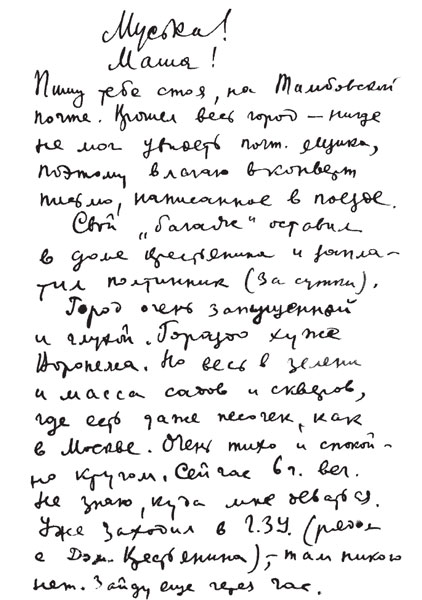 Муська!
Маша!
Пишу тебе стоя, на Тамбовской
почте. Прошел весь город — нигде
не мог увидеть почт. ящика,
поэтому влагаю в конверт
письмо, написанное в поезде.
Свой „багаж“ оставил
в доме крестьянина и запла-
тил полтинник (за сутки).
Город очень запущенный
и глухой. Гораздо хуже
Воронежа. Но весь в зелени
и масса садов и скверов,
где есть даже песочек, как
в Москве. Очень тихо и спокой-
но кругом. Сейчас 6 ч. веч.
Не знаю, куда мне деваться.
Уже заходил в Г.З.У. (рядом
с Дом. Крестьянина), — там никого
нет. Зайду еще через час.